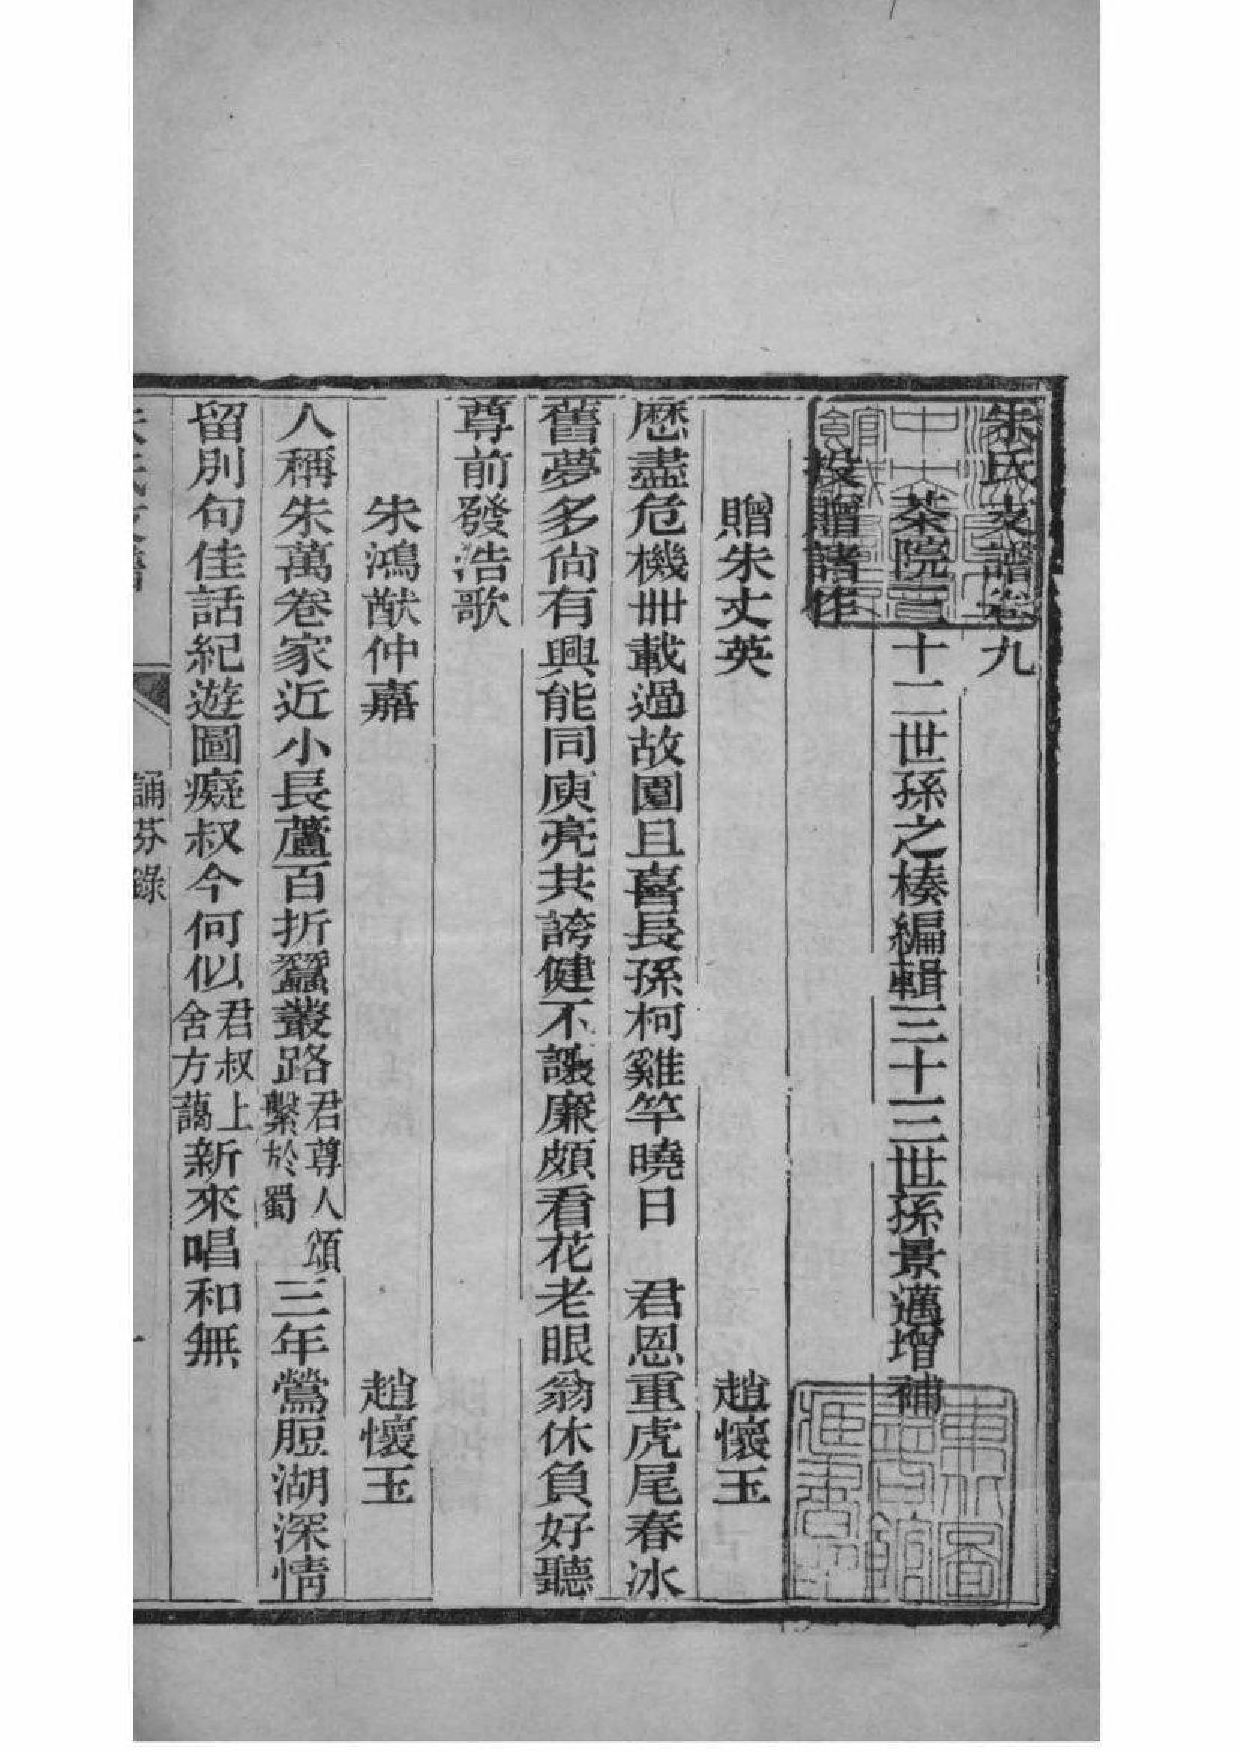 朱氏支譜卷九
茶院三十二世孫之榛編輯三十三世孫景邁增補
投贈諸作
贈朱丈英 趙懷玉
歷盡危機卌載過故園且喜長孫柯雞竿曉日 君恩重虎尾春冰
舊夢多尙有興能同庾亮共誇健不讓廉頗看花老眼翁休負好聽
尊前發浩歌
朱鴻猷仲嘉 趙懷玉
人稱朱萬卷家近小長蘆百折蠶叢路君尊人頌繫於蜀三年鶯脰湖深情
留別句佳話紀遊圖癡叔今何似君叔上舍方藹新來唱和無
朱氏支譜 誦芬錄 一